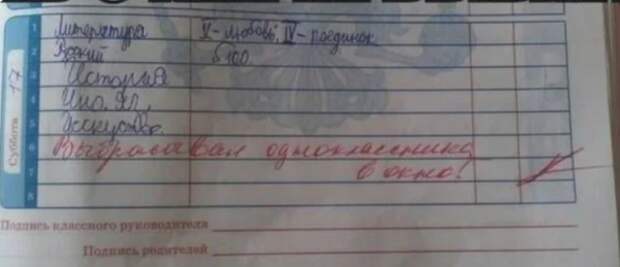 Суббота 17
1 Литература V - любовь, IV - поединок
2 Руский §100
3 История
4 Ино. яз.
5 Исскуство.
6 Выбрасовал одноклассника
7 в окно!
8
Подпись классного руководителя
Подпись родителей